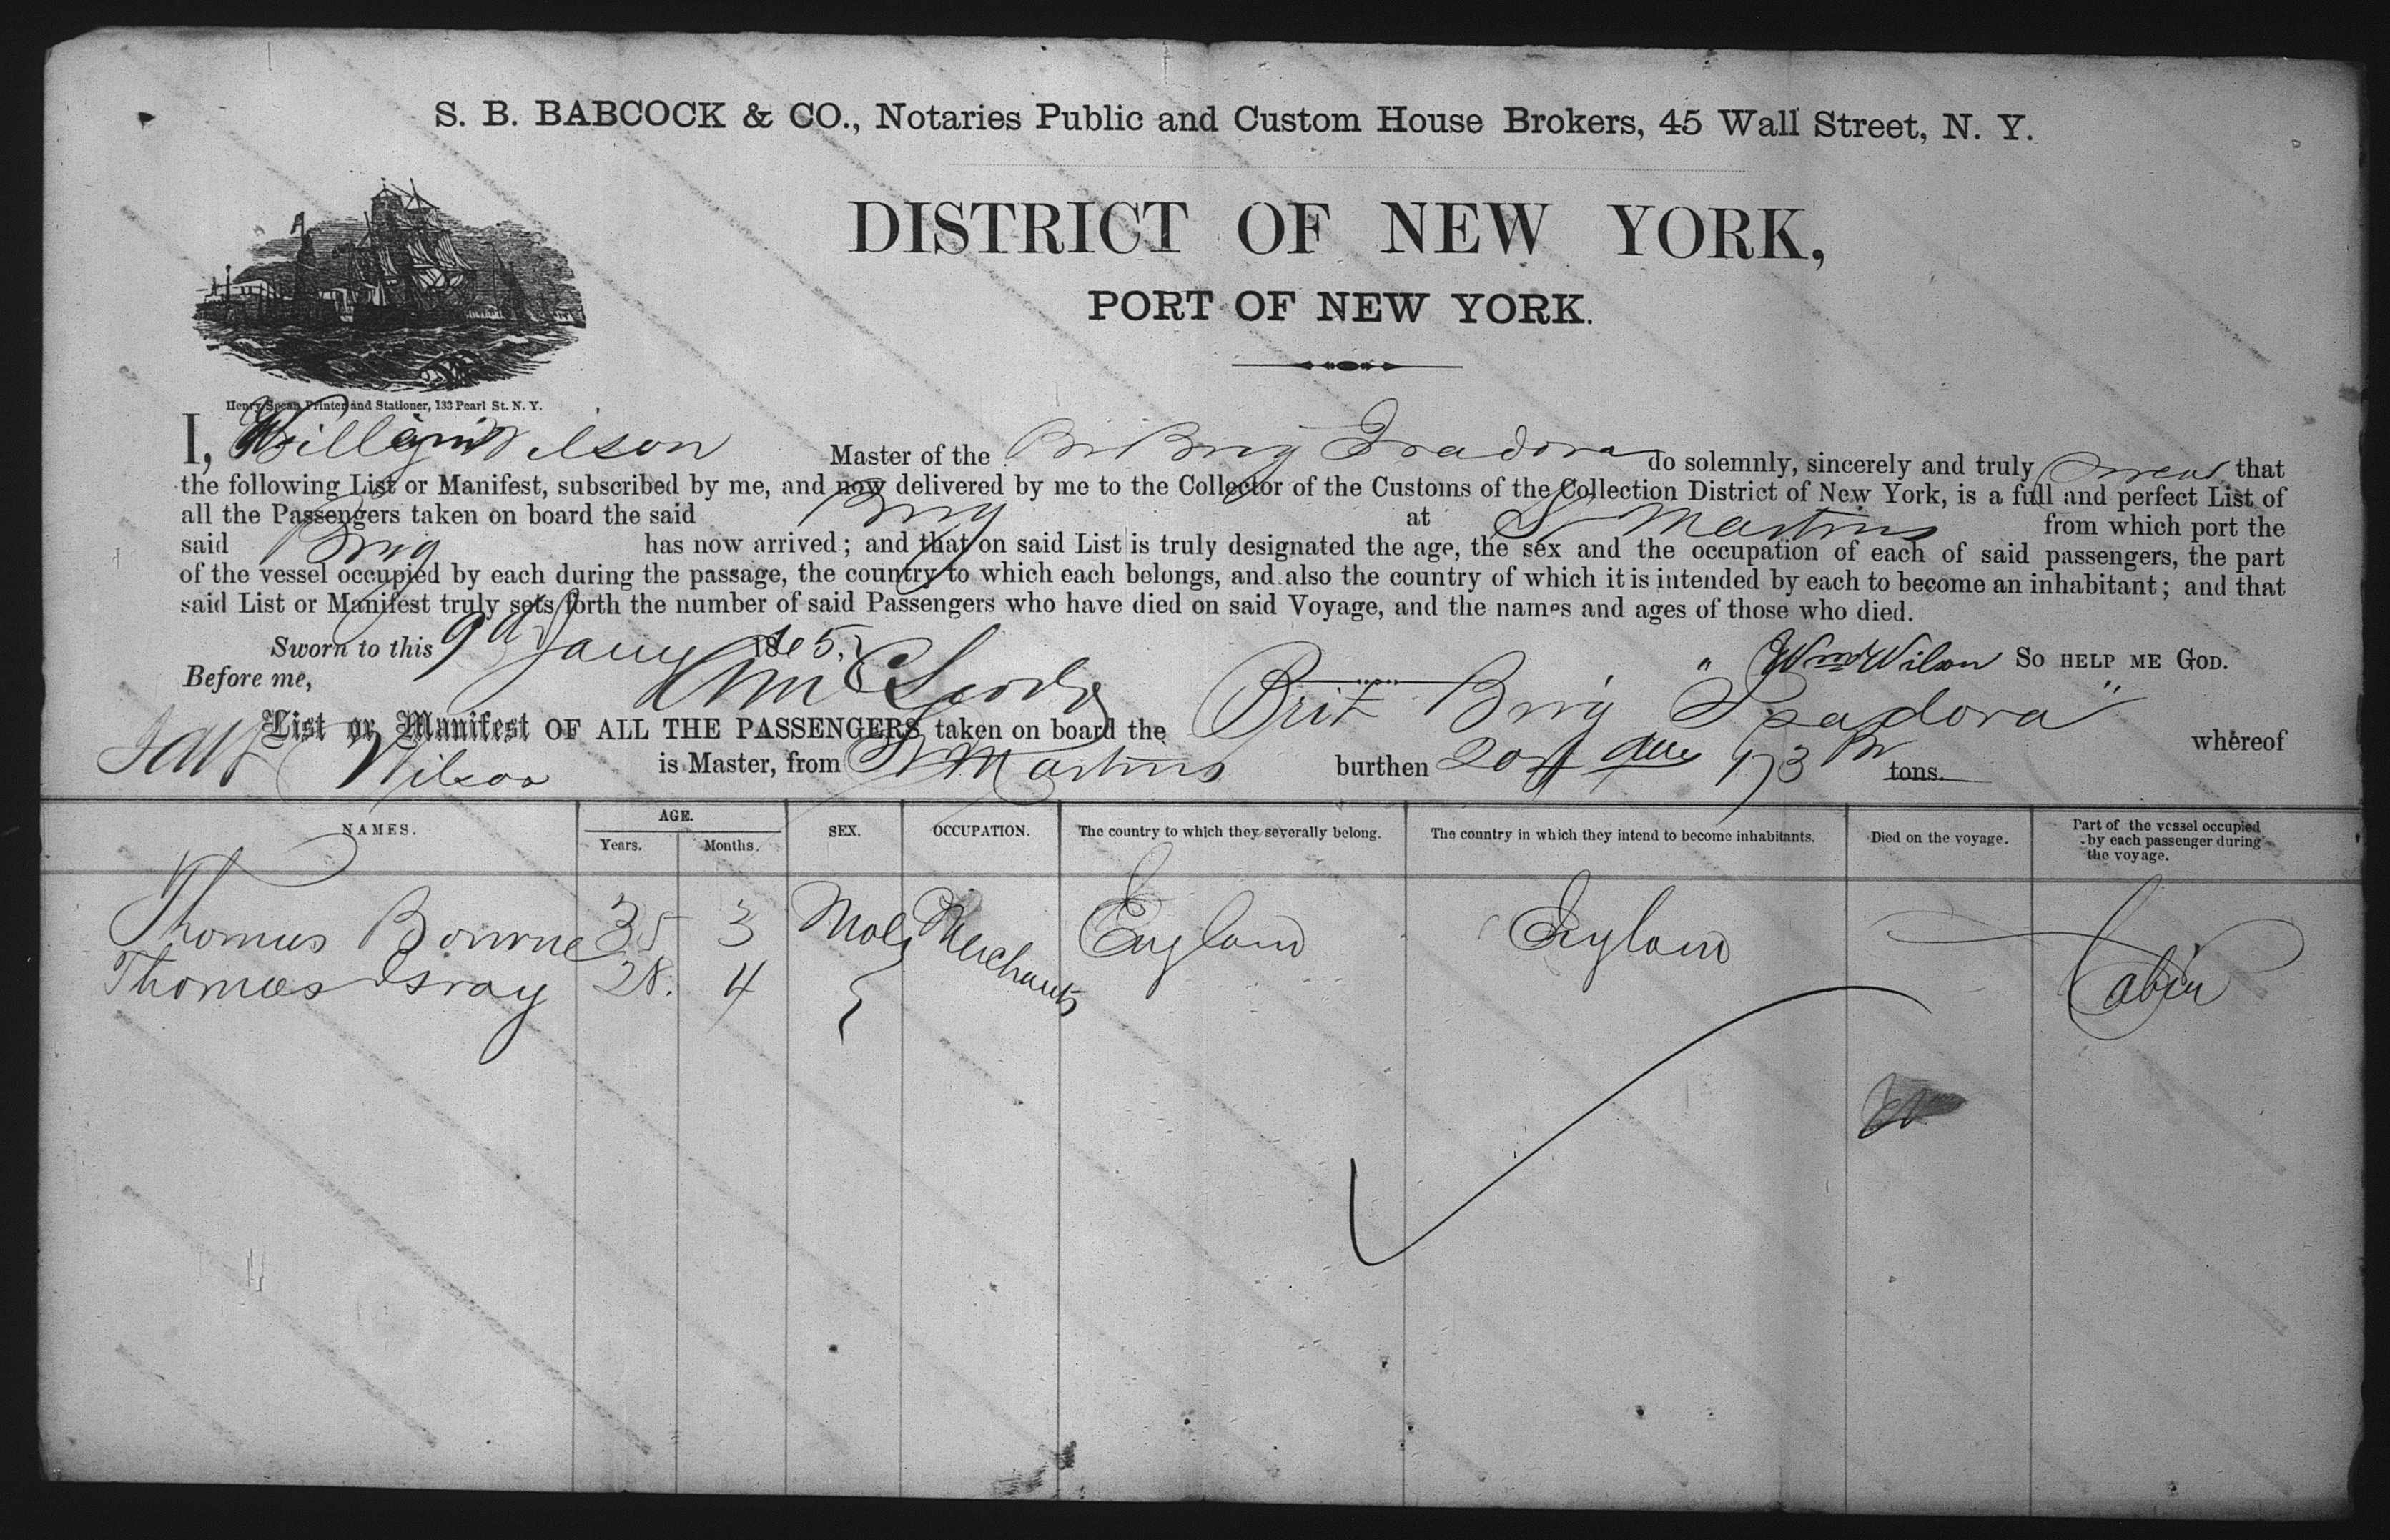 S. B. BABCOCK & CO., Notaries Public and Custom House Brokers, 45 Wall Street, N. Y.
DISTRICT OF NEW YORK,
PORT OF NEW YORK.
Henry Spear, Printer and Stationer, 133 Pearl St. N. Y.
I, William Wilson Master of the Br Brig Isadora do solemnly, sincerely and truly swear that
the following List or Manifest, subscribed by me, and now delivered by me to the Collector of the Customs of the Collection District of New York, is a full and perfect List of
all the Passengers taken on board the said Brig at St Martins from which port the
said Brig has now arrived; and that on said List is truly designated the age, the sex and the occupation of each of said passengers, the part
of the vessel occupied by each during the passage, the country to which each belongs, and also the country of which it is intended by each to become an inhabitant; and that
said List or Manifest truly sets forth the number of said Passengers who have died on said Voyage, and the names and ages of those who died.
Sworn to this 9th Jany 1865, Wm Wilson SO HELP ME GOD.
Before me,
List or Manifest OF ALL THE PASSENGERS taken on board the Brit Brig "Isadora" whereof
Wilson is Master, from St Martins burthen 173 tons.
NAMES. AGE. SEX. OCCUPATION. The country to which they severally belong. The country in which they intend to become inhabitants. Died on the voyage. Part of the vessel occupied by each passenger during the voyage.
Years. Months.
Thomas Bourne 35 3 Male Merchants England England Cabin
Thomas Isray 28. 4